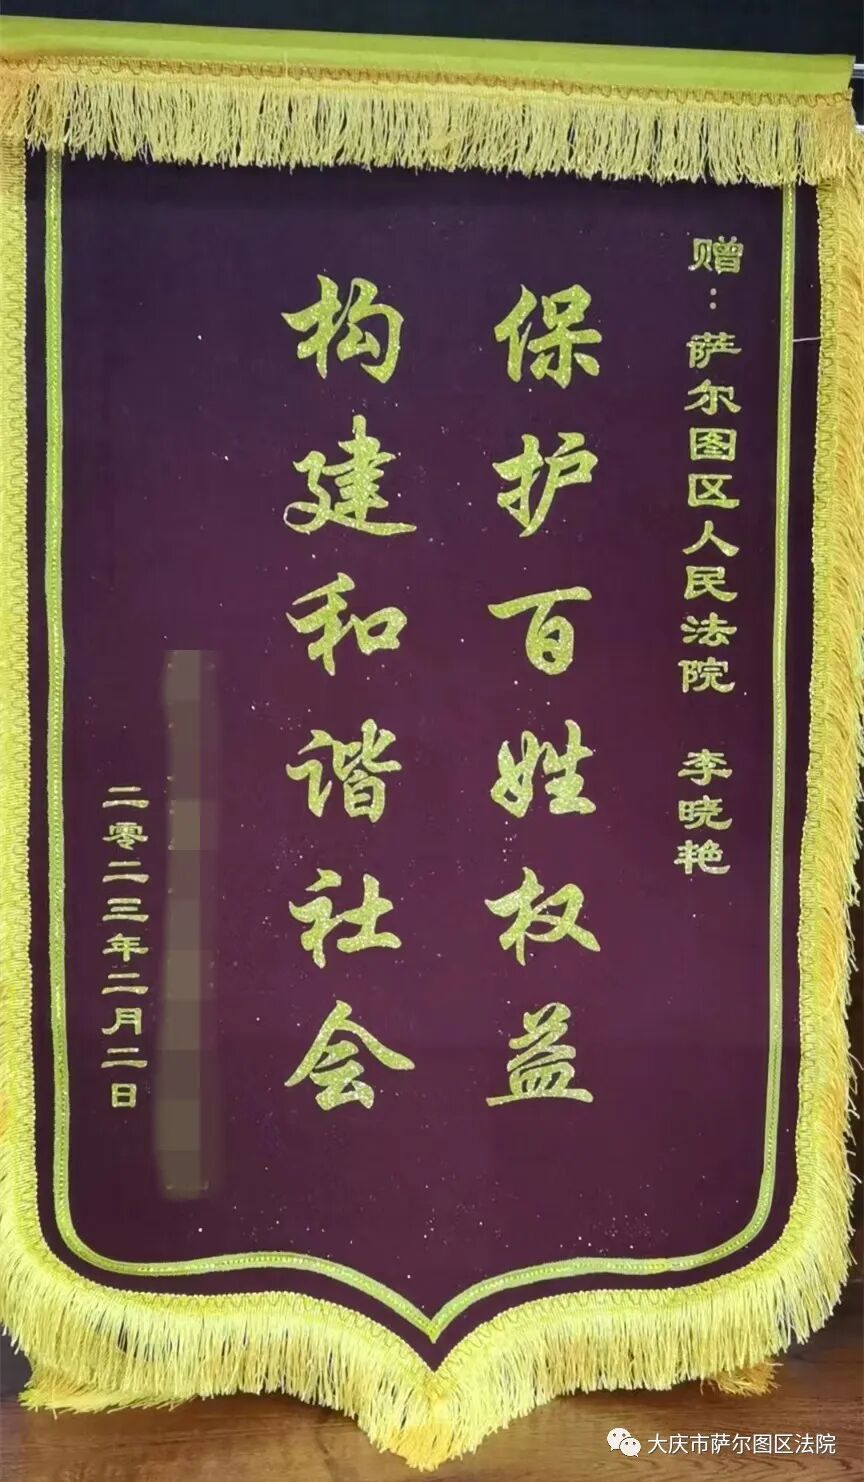 赠：萨尔图区人民法院 李晓艳
保护百姓权益
构建和谐社会
二零二三年二月二日
大庆市萨尔图区法院